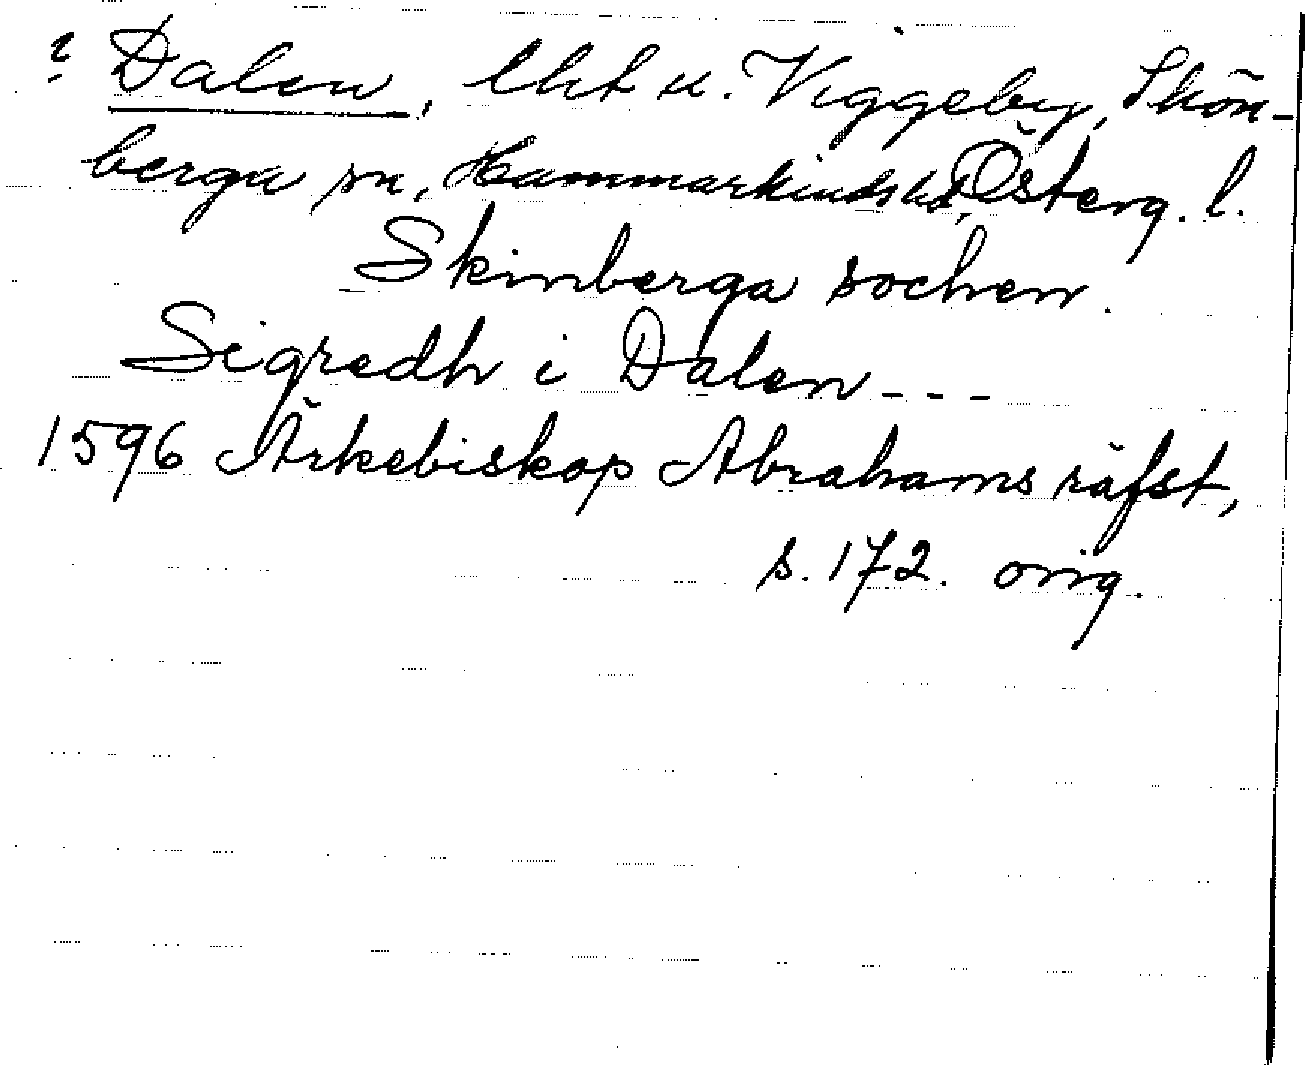 ? Dalen, lht u. Viggeby, Skön-
berga sn, Hammarkinds hd, Österg. l.
Skinberga sochen.
Sigredh i Dalen - - -
1596 Ärkebiskop Abrahams räfst,
s. 172. orig.